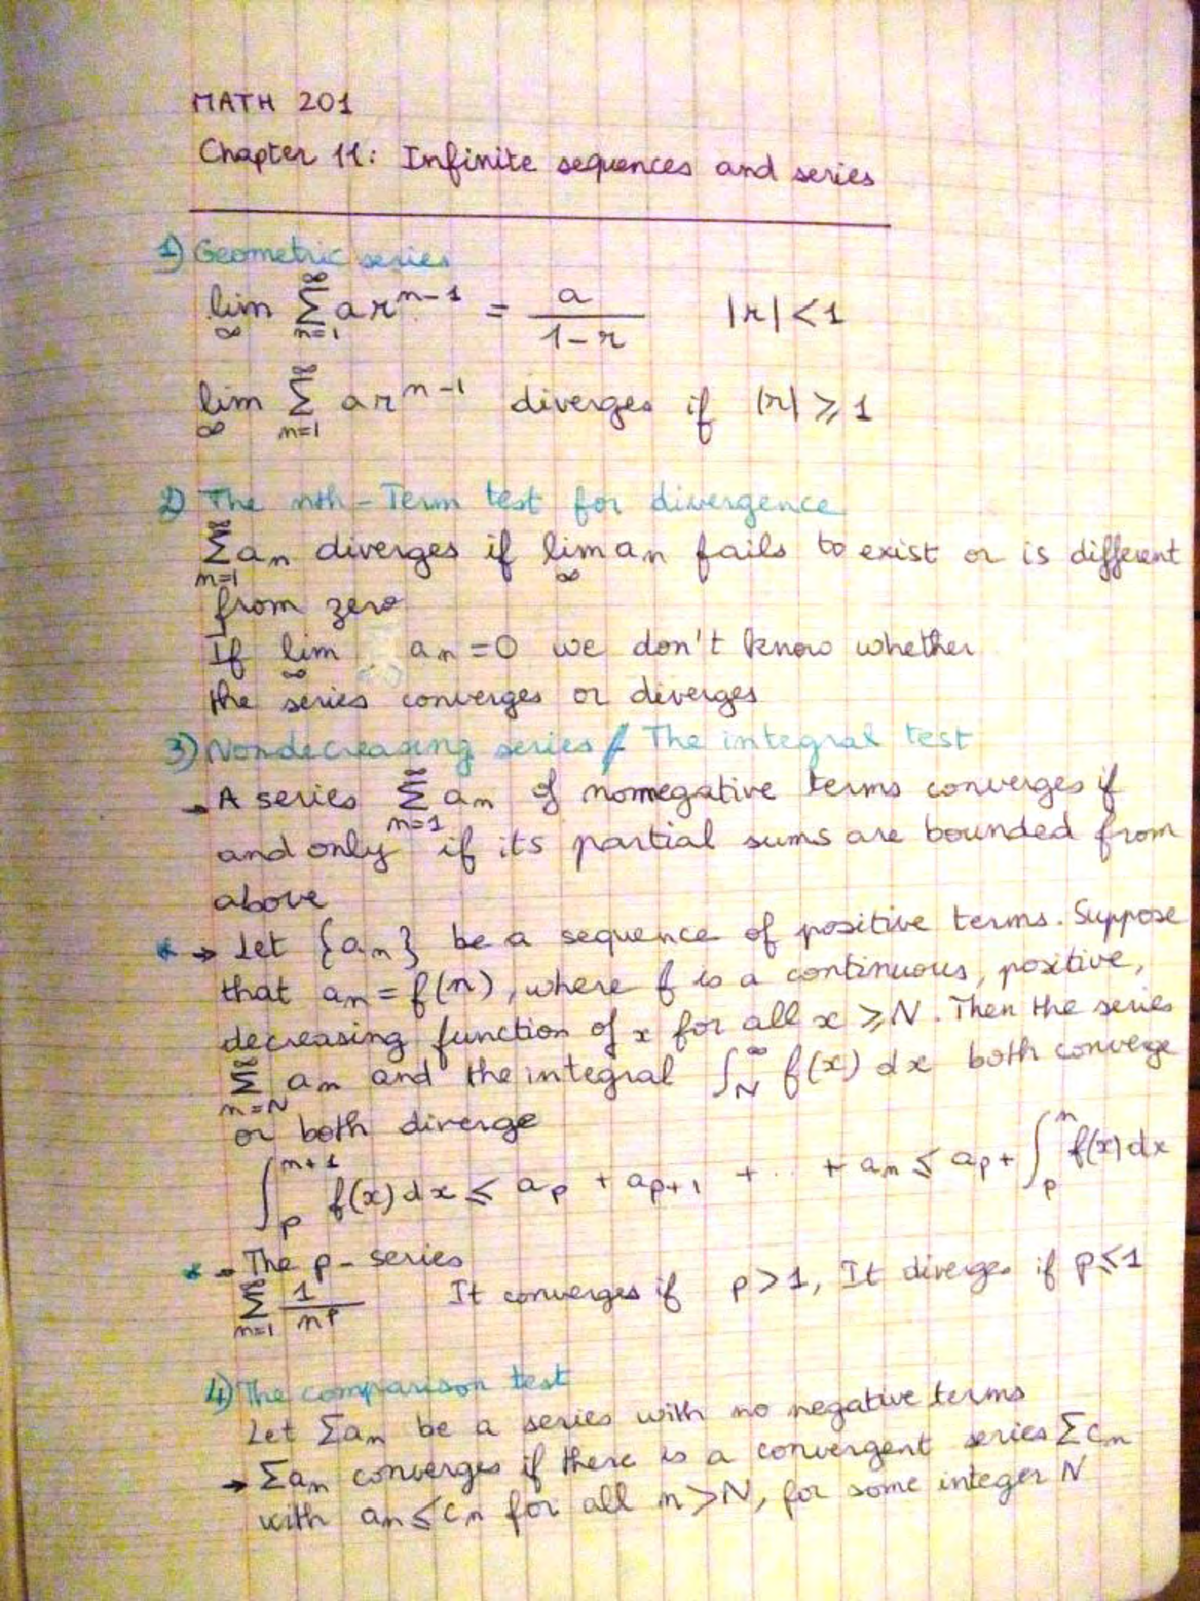 MATH 201
Chapter 11: Infinite sequences and series
1) Geometric series
lim_∞ ∑_{n=1}^{∞} a r^{n-1} = a/(1-r)   |r| < 1
lim_∞ ∑_{n=1}^{∞} a r^{n-1} diverges if |r| ⩾ 1
2) The nth-Term test for divergence
∑_{n=1}^{∞} a_n diverges if lim_∞ a_n fails to exist or is different
from zero
If lim_∞ a_n = 0 we don't know whether
the series converges or diverges
3) Nondecreasing series / The integral test
→ A series ∑_{n=1}^{∞} a_n of nonnegative terms converges if
and only if its partial sums are bounded from
above
* → Let {a_n} be a sequence of positive terms. Suppose
that a_n = f(n), where f is a continuous, positive,
decreasing function of x for all x ⩾ N. Then the series
∑_{n=N}^{∞} a_n and the integral ∫_N^∞ f(x) dx both converge
or both diverge
∫_p^{n+1} f(x) dx ⩽ a_p + a_{p+1} + ... + a_n ⩽ a_p + ∫_p^n f(x) dx
* → The p-series
∑_{n=1}^{∞} 1/n^p   It converges if p > 1, It diverges if p ⩽ 1
4) The comparison test
Let ∑a_n be a series with no negative terms
→ ∑a_n converges if there is a convergent series ∑c_n
with a_n ⩽ c_n for all n > N, for some integer N